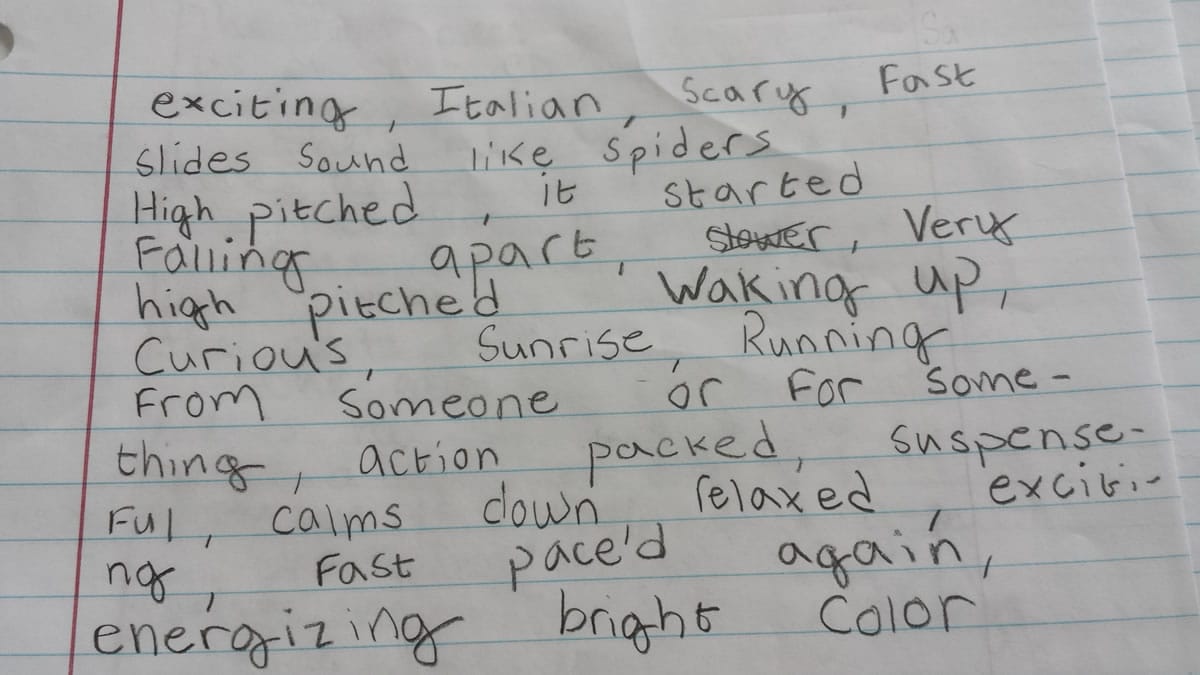 exciting, Italian, Scary, Fast
Slides Sound like Spiders
High pitched, it started
Falling apart, slower, Very
high pitched Waking up,
Curious, Sunrise, Running
From Someone or For Some-
thing, action packed, suspense-
Ful, calms down relaxed, exciti-
ng, Fast pace'd again,
energizing bright Color